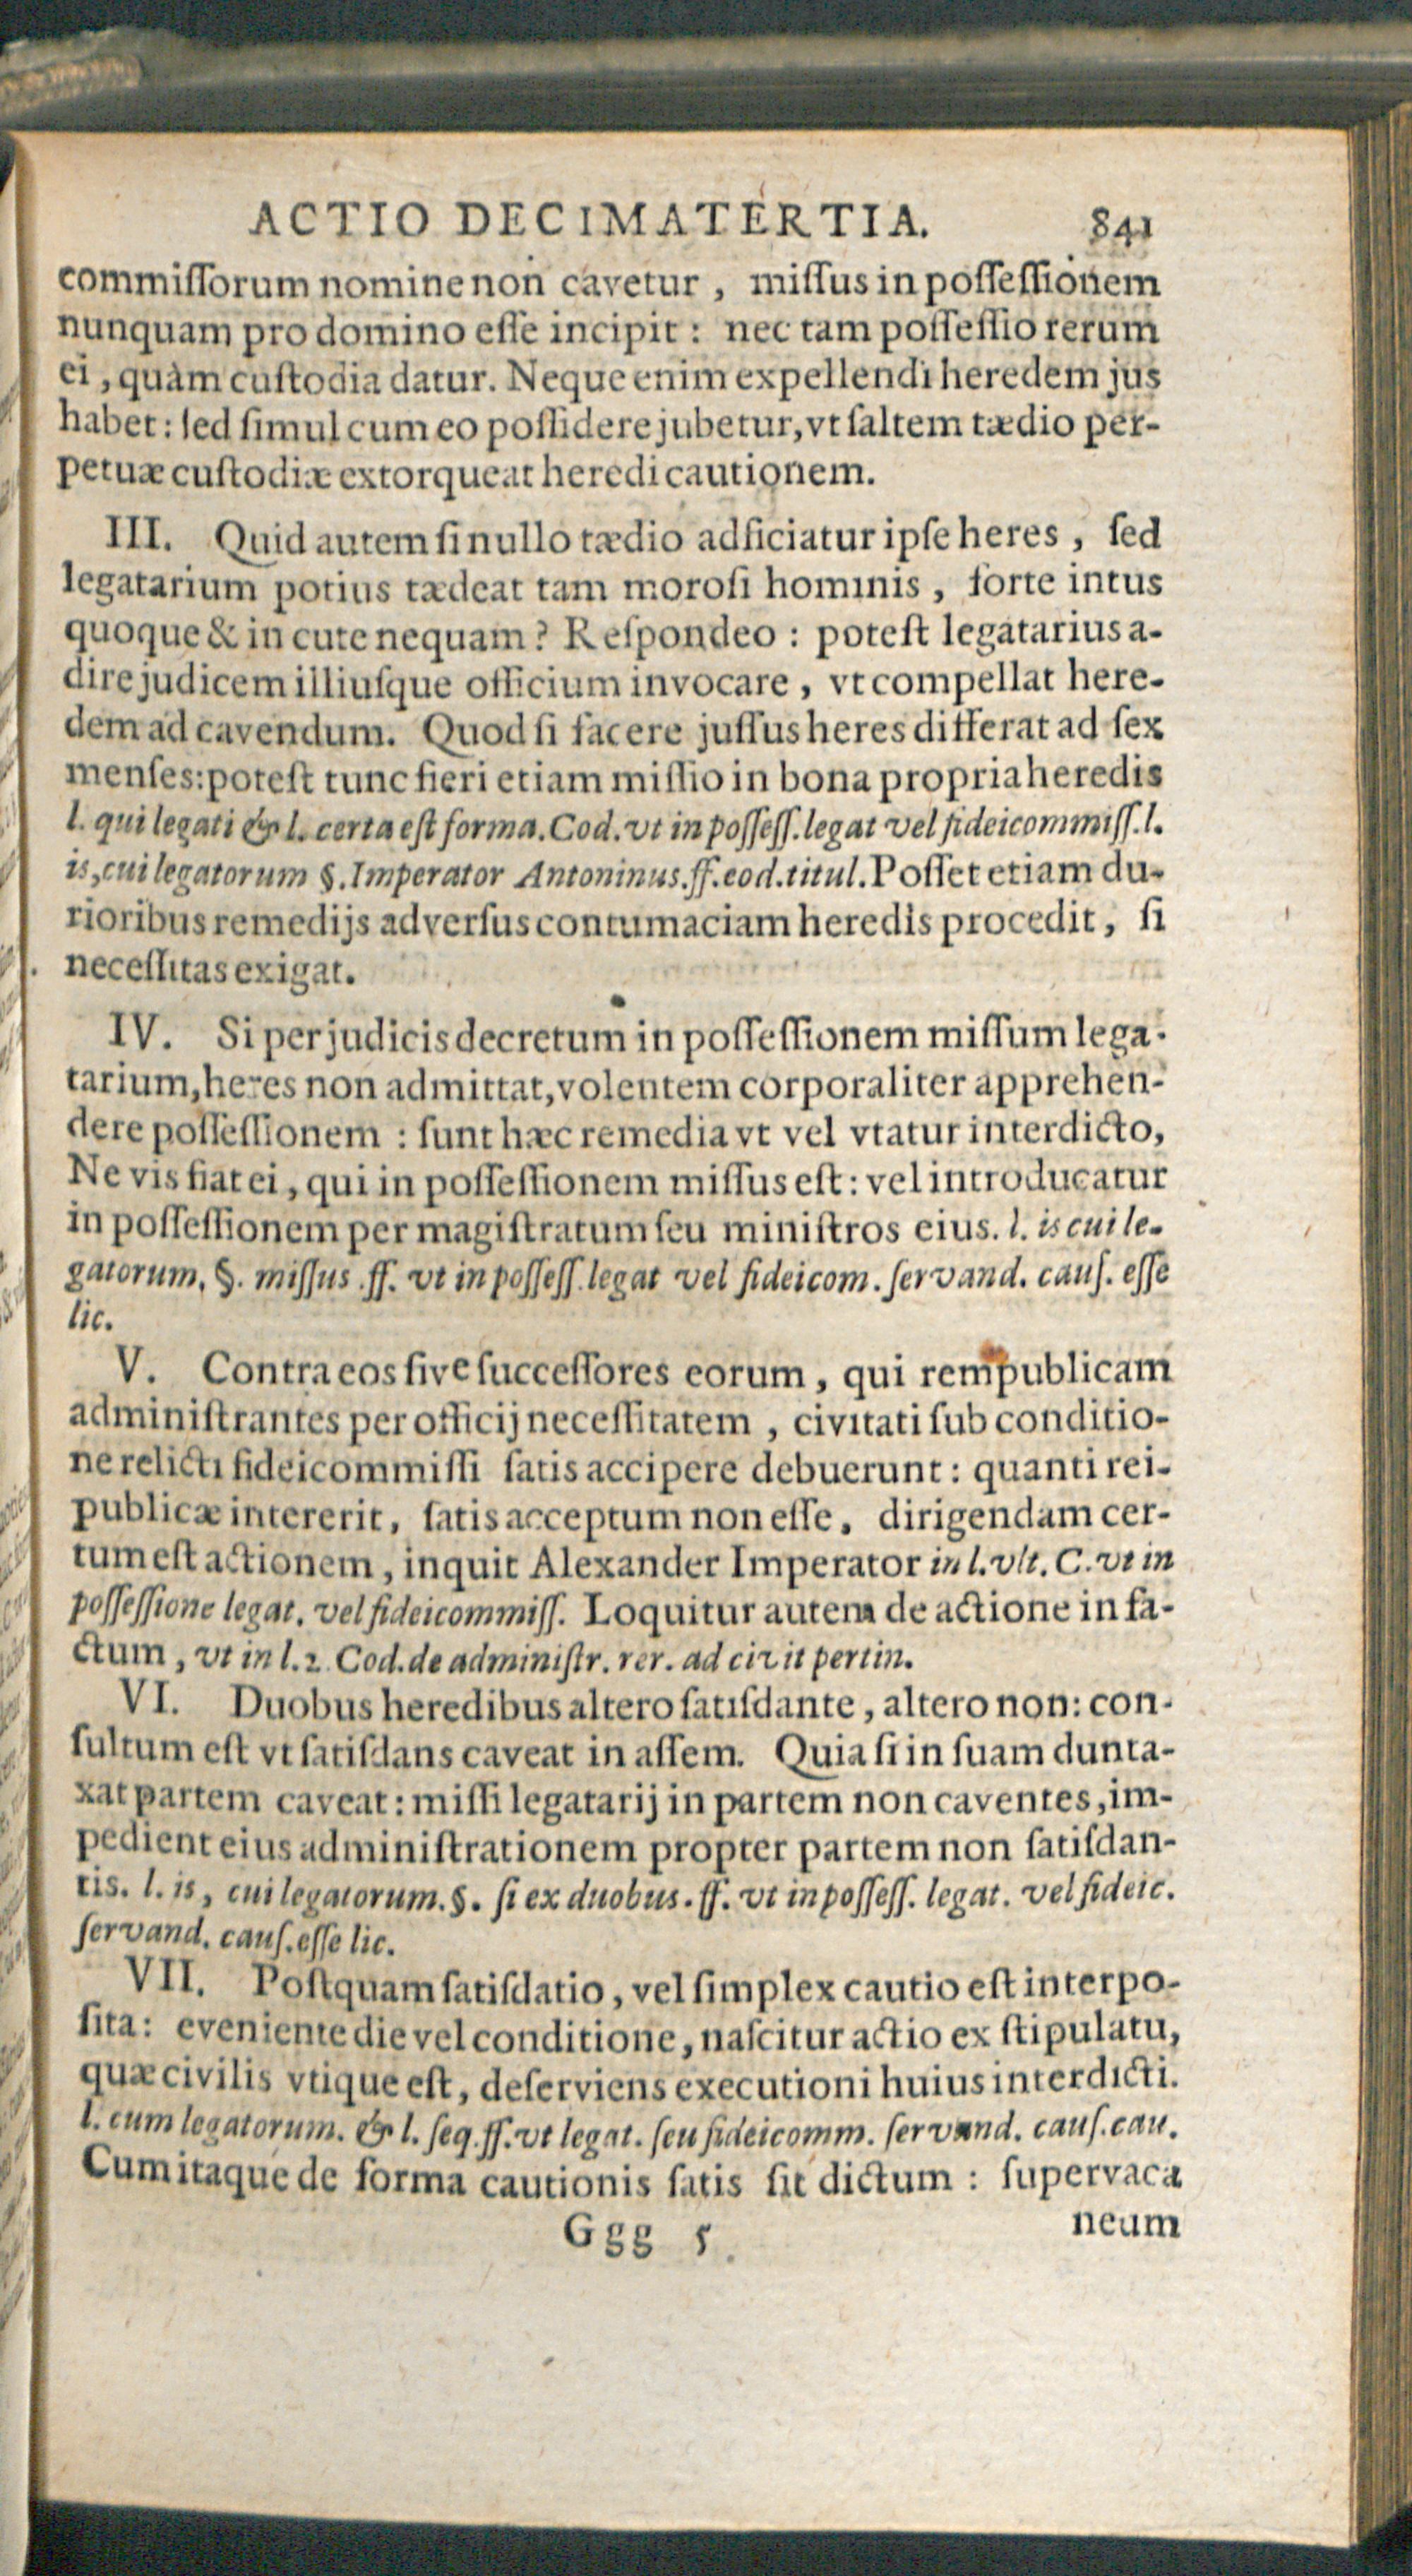 ACTIO DECIMATERTIA. 841
commiſſorum nomine non cavetur, miſſus in poſſeſſionem
nunquam pro domino eſſe incipit: nec tam poſſeſſio rerum
ei, quàm cuſtodia datur. Neque enim expellendi heredem jus
habet: ſed ſimul cum eo poſſidere jubetur, vt ſaltem tædio per-
petuæ cuſtodiæ extorqueat heredi cautionem.
III. Quid autem ſi nullo tædio adficiatur ipſe heres, ſed
legatarium potius tædeat tam moroſi hominis, forte intus
quoque & in cute nequam? Reſpondeo: poteſt legatarius a-
dire judicem illiuſque officium invocare, vt compellat here-
dem ad cavendum. Quod ſi facere juſſus heres differat ad ſex
menſes: poteſt tunc fieri etiam miſſio in bona propria heredis
l. qui legati & l. certa eſt forma. Cod. vt in poſſeſſ. legat vel fideicommiſſ. l.
is, cui legatorum §. Imperator Antoninus. ff. eod. titul. Poſſet etiam du-
rioribus remedijs adverſus contumaciam heredis procedit, ſi
neceſſitas exigat.
IV. Si per judicis decretum in poſſeſſionem miſſum lega-
tarium, heres non admittat, volentem corporaliter apprehen-
dere poſſeſſionem: ſunt hæc remedia vt vel vtatur interdicto,
Ne vis fiat ei, qui in poſſeſſionem miſſus eſt: vel introducatur
in poſſeſſionem per magiſtratum ſeu miniſtros eius. l. is cui le-
gatorum. §. miſſus. ff. vt in poſſeſſ. legat vel fideicom. ſervand. cauſ. eſſe
lic.
V. Contra eos ſive ſucceſſores eorum, qui rempublicam
adminiſtrantes per officij neceſſitatem, civitati ſub conditio-
ne relicti fideicommiſſi ſatis accipere debuerunt: quanti rei-
publicæ intererit, ſatis acceptum non eſſe, dirigendam cer-
tum eſt actionem, inquit Alexander Imperator in l. vlt. C. vt in
poſſeſſione legat. vel fideicommiſſ. Loquitur autem de actione in fa-
ctum, vt in l. 2. Cod. de adminiſtr. rer. ad civit pertin.
VI. Duobus heredibus altero ſatiſdante, altero non: con-
ſultum eſt vt ſatiſdans caveat in aſſem. Quia ſi in ſuam dunta-
xat partem caveat: miſſi legatarij in partem non caventes, im-
pedient eius adminiſtrationem propter partem non ſatiſdan-
tis. l. is, cui legatorum. §. ſi ex duobus. ff. vt in poſſeſſ. legat. vel fideic.
ſervand. cauſ. eſſe lic.
VII. Poſtquam ſatiſdatio, vel ſimplex cautio eſt interpo-
ſita: eveniente die vel conditione, naſcitur actio ex ſtipulatu,
quæ civilis vtique eſt, deſerviens executioni huius interdicti.
l. cum legatorum. & l. ſeq. ff. vt legat. ſeu fideicomm. ſervand. cauſ. cau.
Cum itaque de forma cautionis ſatis ſit dictum: ſupervaca
Ggg 5 neum